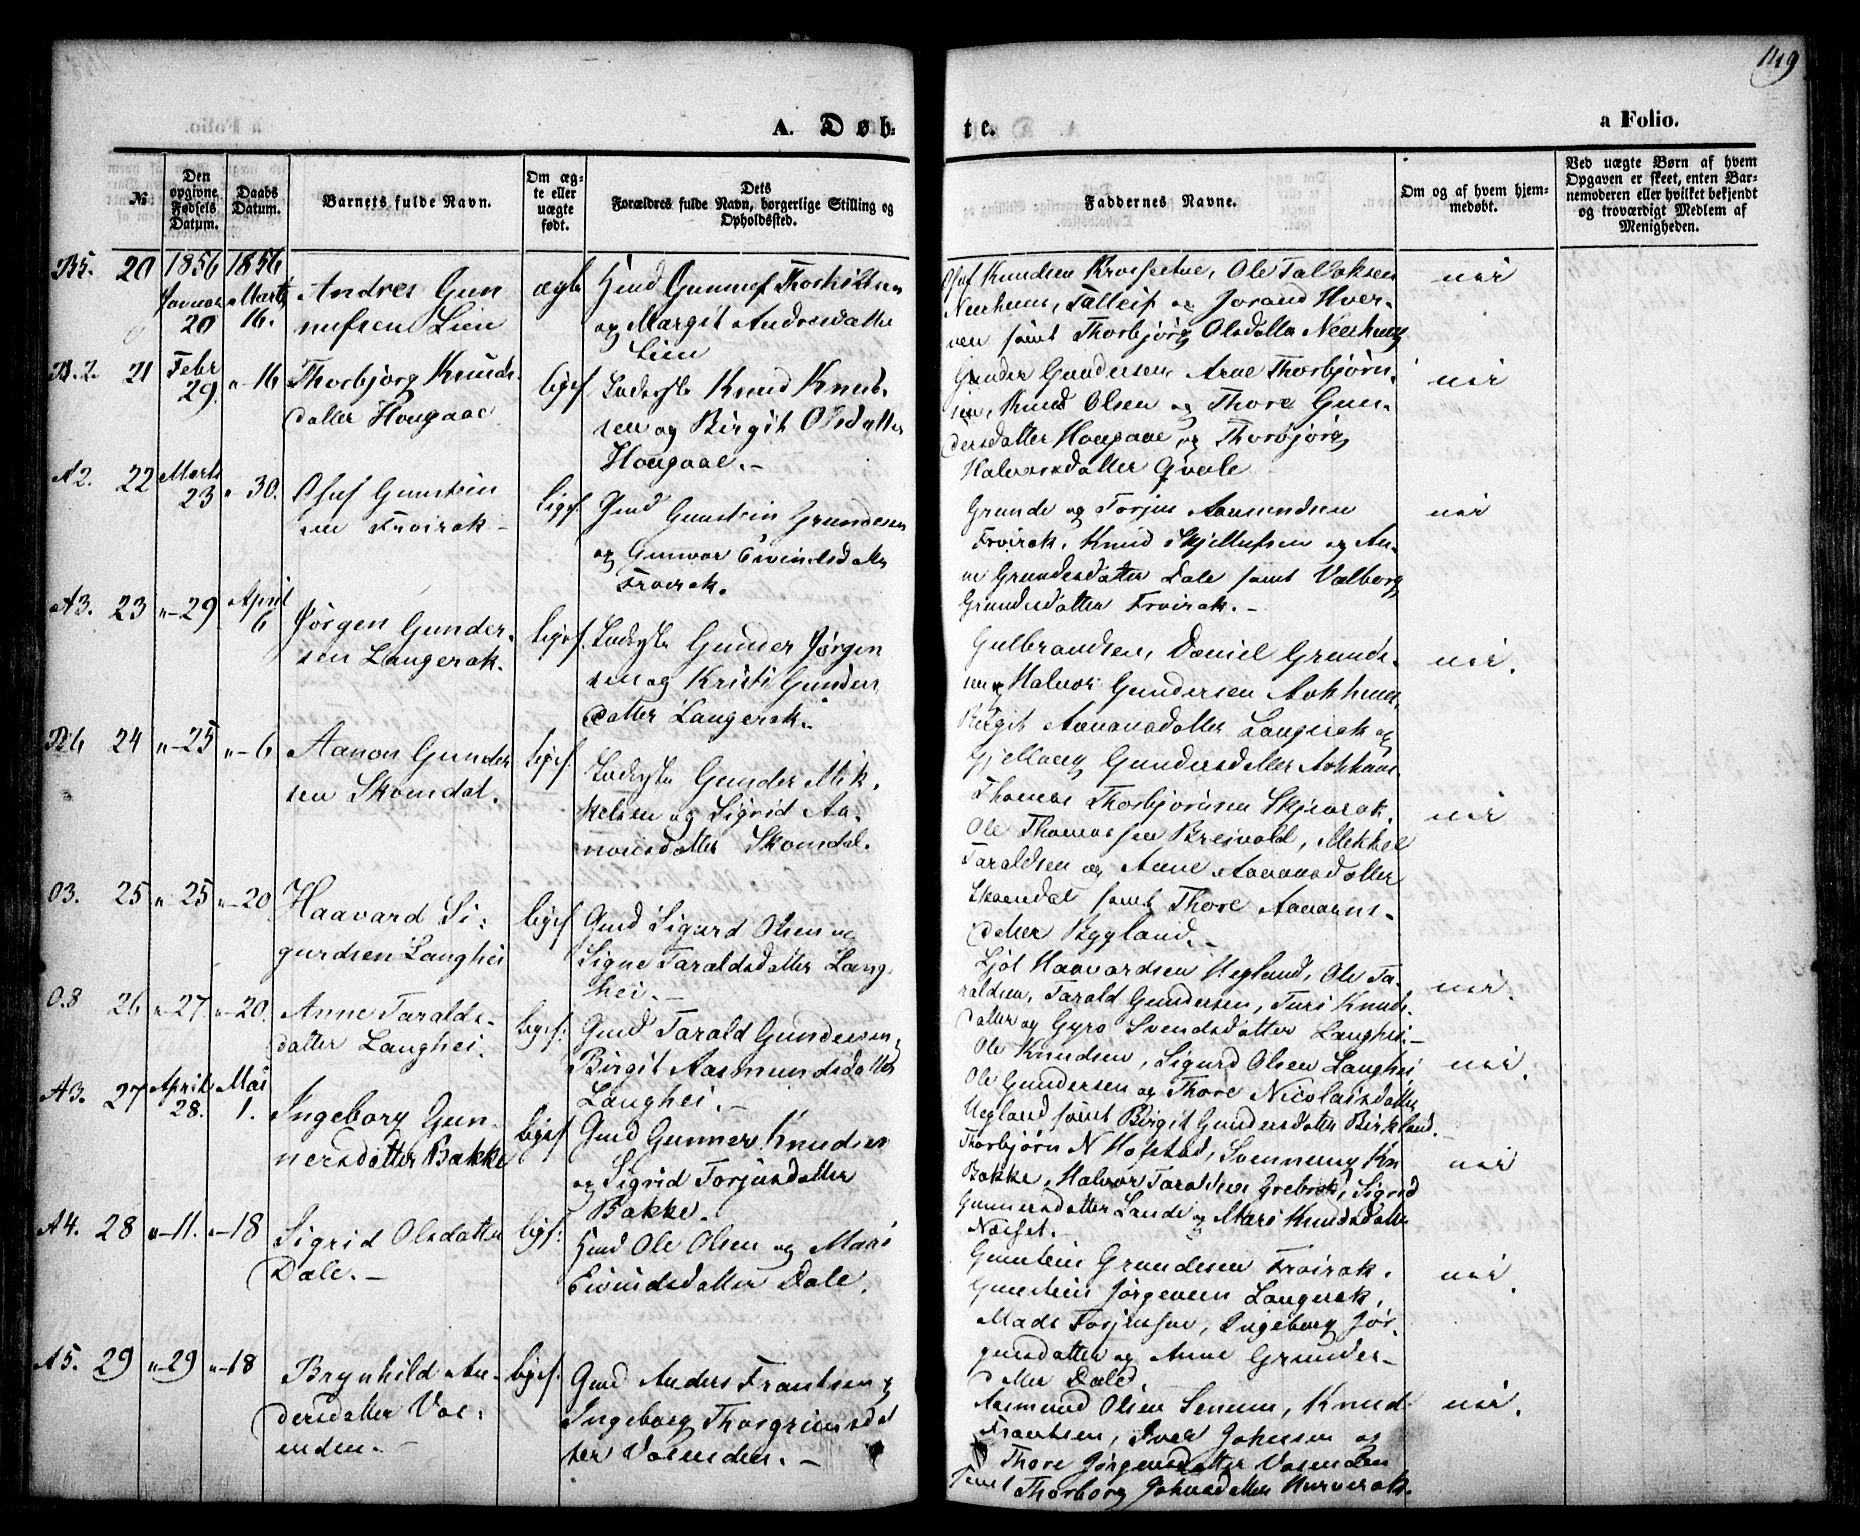 149
A. Døb-
te.
a Folio.
№
Den opgivne Fødsels Datum.
Daabs Datum.
Barnets fulde Navn.
Om ægte eller uægte født.
Dets Forældres fulde Navn, borgerlige Stilling og Opholdssted.
Faddernes Navne.
Om og af hvem hjemmedøbt.
Ved uægte Børn af hvem Opgaven er skeet, enten Barnemoderen eller hvilket bekjendt og troværdigt Medlem af Menigheden.
B5. 20 1856 Januar 20 1856 Marts 16.
Andres Gun
nufsen Lien
ægte
Hmd Gunnuf Thorkildsen
og Margit Andresdatter
Lien
Olaf Knudsen Ole Tallaksen
Neerheim, Talleif og Jorand Hver-
ven samt Thorbjørg Olsdatter Neerheim
nei
B.2. 21 Febr 29. "-16
Thorbjørg Knuds-
datter Hougaae
ligef
Ladsyts Knud Knud-
sen og Birgit Olsdatter
Hougaae.-
Gunder Gundersen, Arne Thorbjørn-
sen, Knud Olsen og Thore Gun-
dersdatter Hougaae og Thorbjørg
Halvorsdatter Qvale
nei
A2. 22 Marts 23 "30.
Olaf Gunstein
sen Frøirak-
ligef.
Gmd Gunstein Grundesen
og Gunvor Eivindsdatter
Frøirak.
Grunde og Torjus Aamundsen
Frøirak, Knud Kjetilufsen og An-
ne Grundesdatter Dale samt Valborg
Grundesdatter Frøirak.-
nei
A3. 23 "-29 April 6
Jørgen Gunder-
sen Langerak.
ligef.
Ladsyts Gunder Jørgen
sen og Kristi Gunders
datter Langerak.
Gulbrandsen, Daniel Grunde-
sen og Halvor Gundersen Aakhuus,
Birgit Aanonsdatter Langerak og
Gjellaug Gundersdatter Aakhuus.
nei.
B6 24 "-25 "-6
Aanon Gunder
sen Skomdal.
ligef
Ladsyts Gunder Mik-
kelsen og Sigrid Aa-
nonsdatter Skomdal.
Thomas Thorbjørnsen Skjevrak,
Ole Thomassen Breivold, Mikkel
Taraldsen og Anne Aanonsdatter
Skomdal samt Thore Aanons-
datter Bygland.-
nei
O3. 25 "-25 "-20
Haavard Si-
gurdsen Langhei
ligef
Gmd Sigurd Olsen og
Signe Taraldsdatter Lang-
hei.-
Ljøt Haavardsen Hegland, Ole Ta-
raldsen, Tarald Gundersen, Turi Knuds-
datter og Gyro Svendsdatter Langhei.-
nei.
O.8 26 "-27 "-20.
Anne Taralds-
datter Langhei.
ligef.
Gmd Tarald Gundersen,
Birgit Aasmundsdatter
Langhei.-
Ole Knudsen, Sigurd Olsen Langhei
Ole Gundersen og Thore Nicolaisdatter
Hegland samt Birgit Gundersdatter Birkland.
nei.
A3. 27 April 28. Mai 1.
Ingeborg Gun-
nersdatter Bakke
ligef
Gmd Gunner Knudsen
og Sigrid Torjusdatter
Bakke.
Thorbjørn N Hofstad, Svennung Kn
Bakke, Halvor Taraldsen Grebrok, Sigrid
Gunnersdatter Lande og Mari Knudsdatter
Næset.-
nei
A4. 28 "-11. "-18
Sigrid Olsdatter
Dale.-
ligef.
Hmd Ole Olsen og Mari
Eivindsdatter Dale.
Gunstein Grundesen Frøirak.
Gunstein Jørgensen Langerak,
Mads Torjussen, Ingeborg Jør-
gensdatter og Anne Grundes-
datter Dale.
nei.
A5. 29 "-29 "-18
Brynhild An-
dersdatter Vas-
enden.-
ligef.
Gmd Anders Frantsen og
Ingeborg Thorgrimsdat
ter Vasenden.-
Aasmund Olsen Senum, Knud
Frantsen, Iver Johnsen og
Thore Jørgensdatter Vasenden
samt Thorborg Johnsdatter
nei.